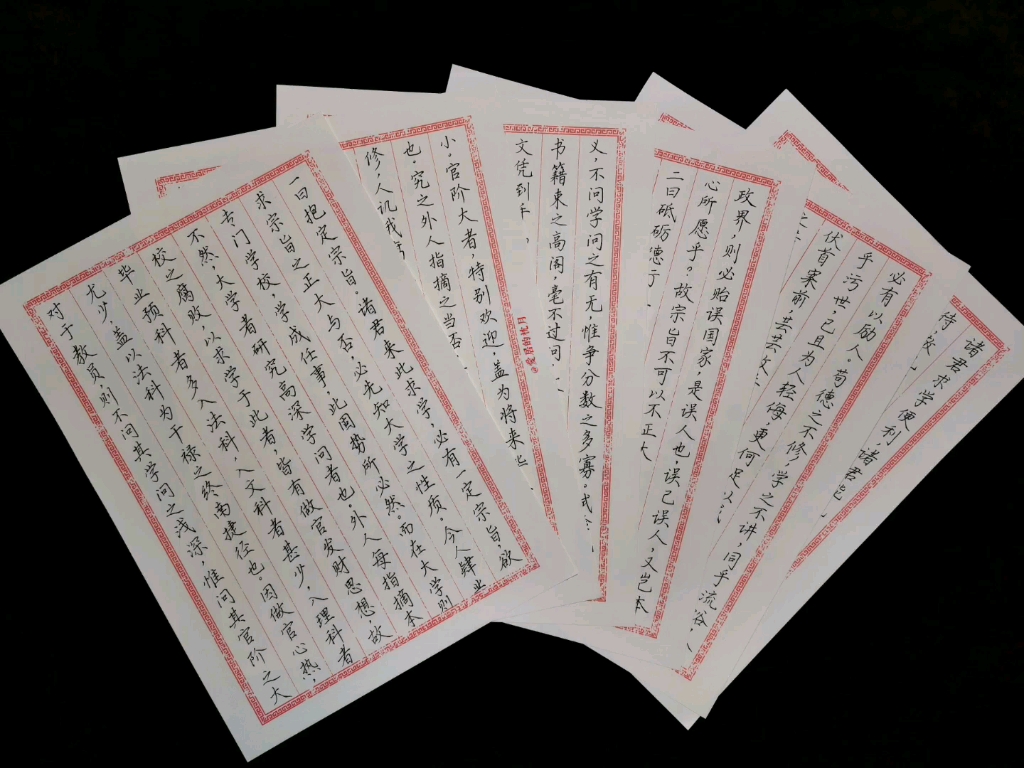 一曰抱定宗旨,诸君来此求学,必有一定宗旨,欲
求宗旨之正大与否,必先知大学之性质。今人肄业
专门学校,学成任事,此固势所必然。而在大学则
不然,大学者研究高深学问者也。外人每指摘本
校之腐败,以求学于此者,皆有做官发财思想,故
毕业预科者多入法科,入文科者甚少,入理科者
尤少,盖以法科为干禄之终南捷径也。因做官心热,
对于教员则不问其学问之浅深,惟问其官阶之大
小。官阶大者,特别欢迎,盖为将来
也。究之外人指摘之当否
修,人讥我
义,不问学问之有无,惟争分数之多寡。
书籍束之高阁,毫不过问,
文凭到
政界,则必贻误国家,是误人也。误己误人,又岂本
心所愿乎?故宗旨不可以不正大
二曰砥砺德行。
必有以励人。苟德之不修,学之不讲,同乎流俗,
乎污世,己且为人轻侮,更何足以
伏首案前,芸芸
诸君求学便利,诸君岂
待教